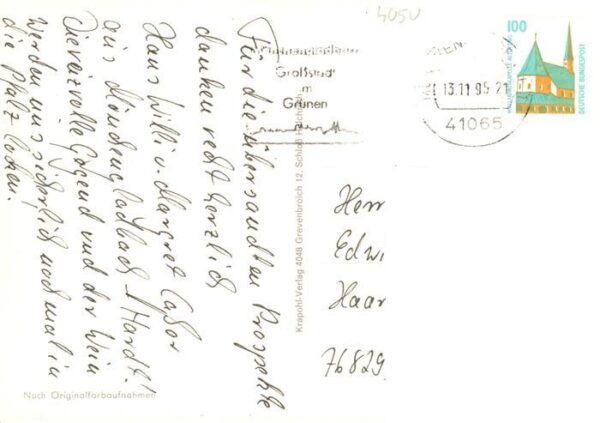 Für die übersandten Prospekte
danken recht herzlich
Hans Willi u. Margret
aus Mönchengladbach Hardt!
Die reizvolle Gegend und der Wein
werden uns sicherlich nochmal in
die Pfalz locken.
Nach Originalfarbaufnahmen
Krapohl-Verlag 4048 Grevenbroich 12, Schloß
4050
Großstadt
im
Grünen
13.11.95-21
41065
100
DEUTSCHE BUNDESPOST
Herr
Edwi
Haar
76829